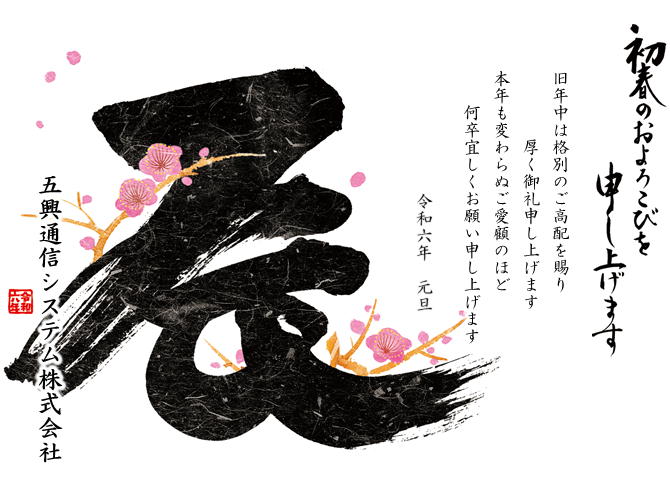 初春のおよろこびを
申し上げます
旧年中は格別のご高配を賜り
厚く御礼申し上げます
本年も変わらぬご愛顧のほど
何卒宜しくお願い申し上げます
令和六年 元旦
辰
五興通信システム株式会社
令和
六年